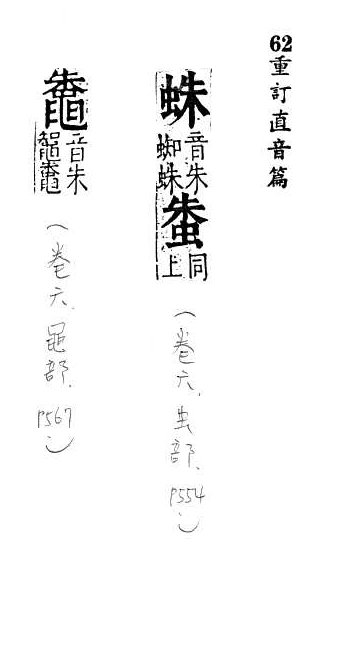 62重訂直音篇
蛛
音朱
蜘蛛
𧊒
同
上
(卷六.虫部.P554)
鼄
音朱
鼅鼄
(卷六.黽部.P567)